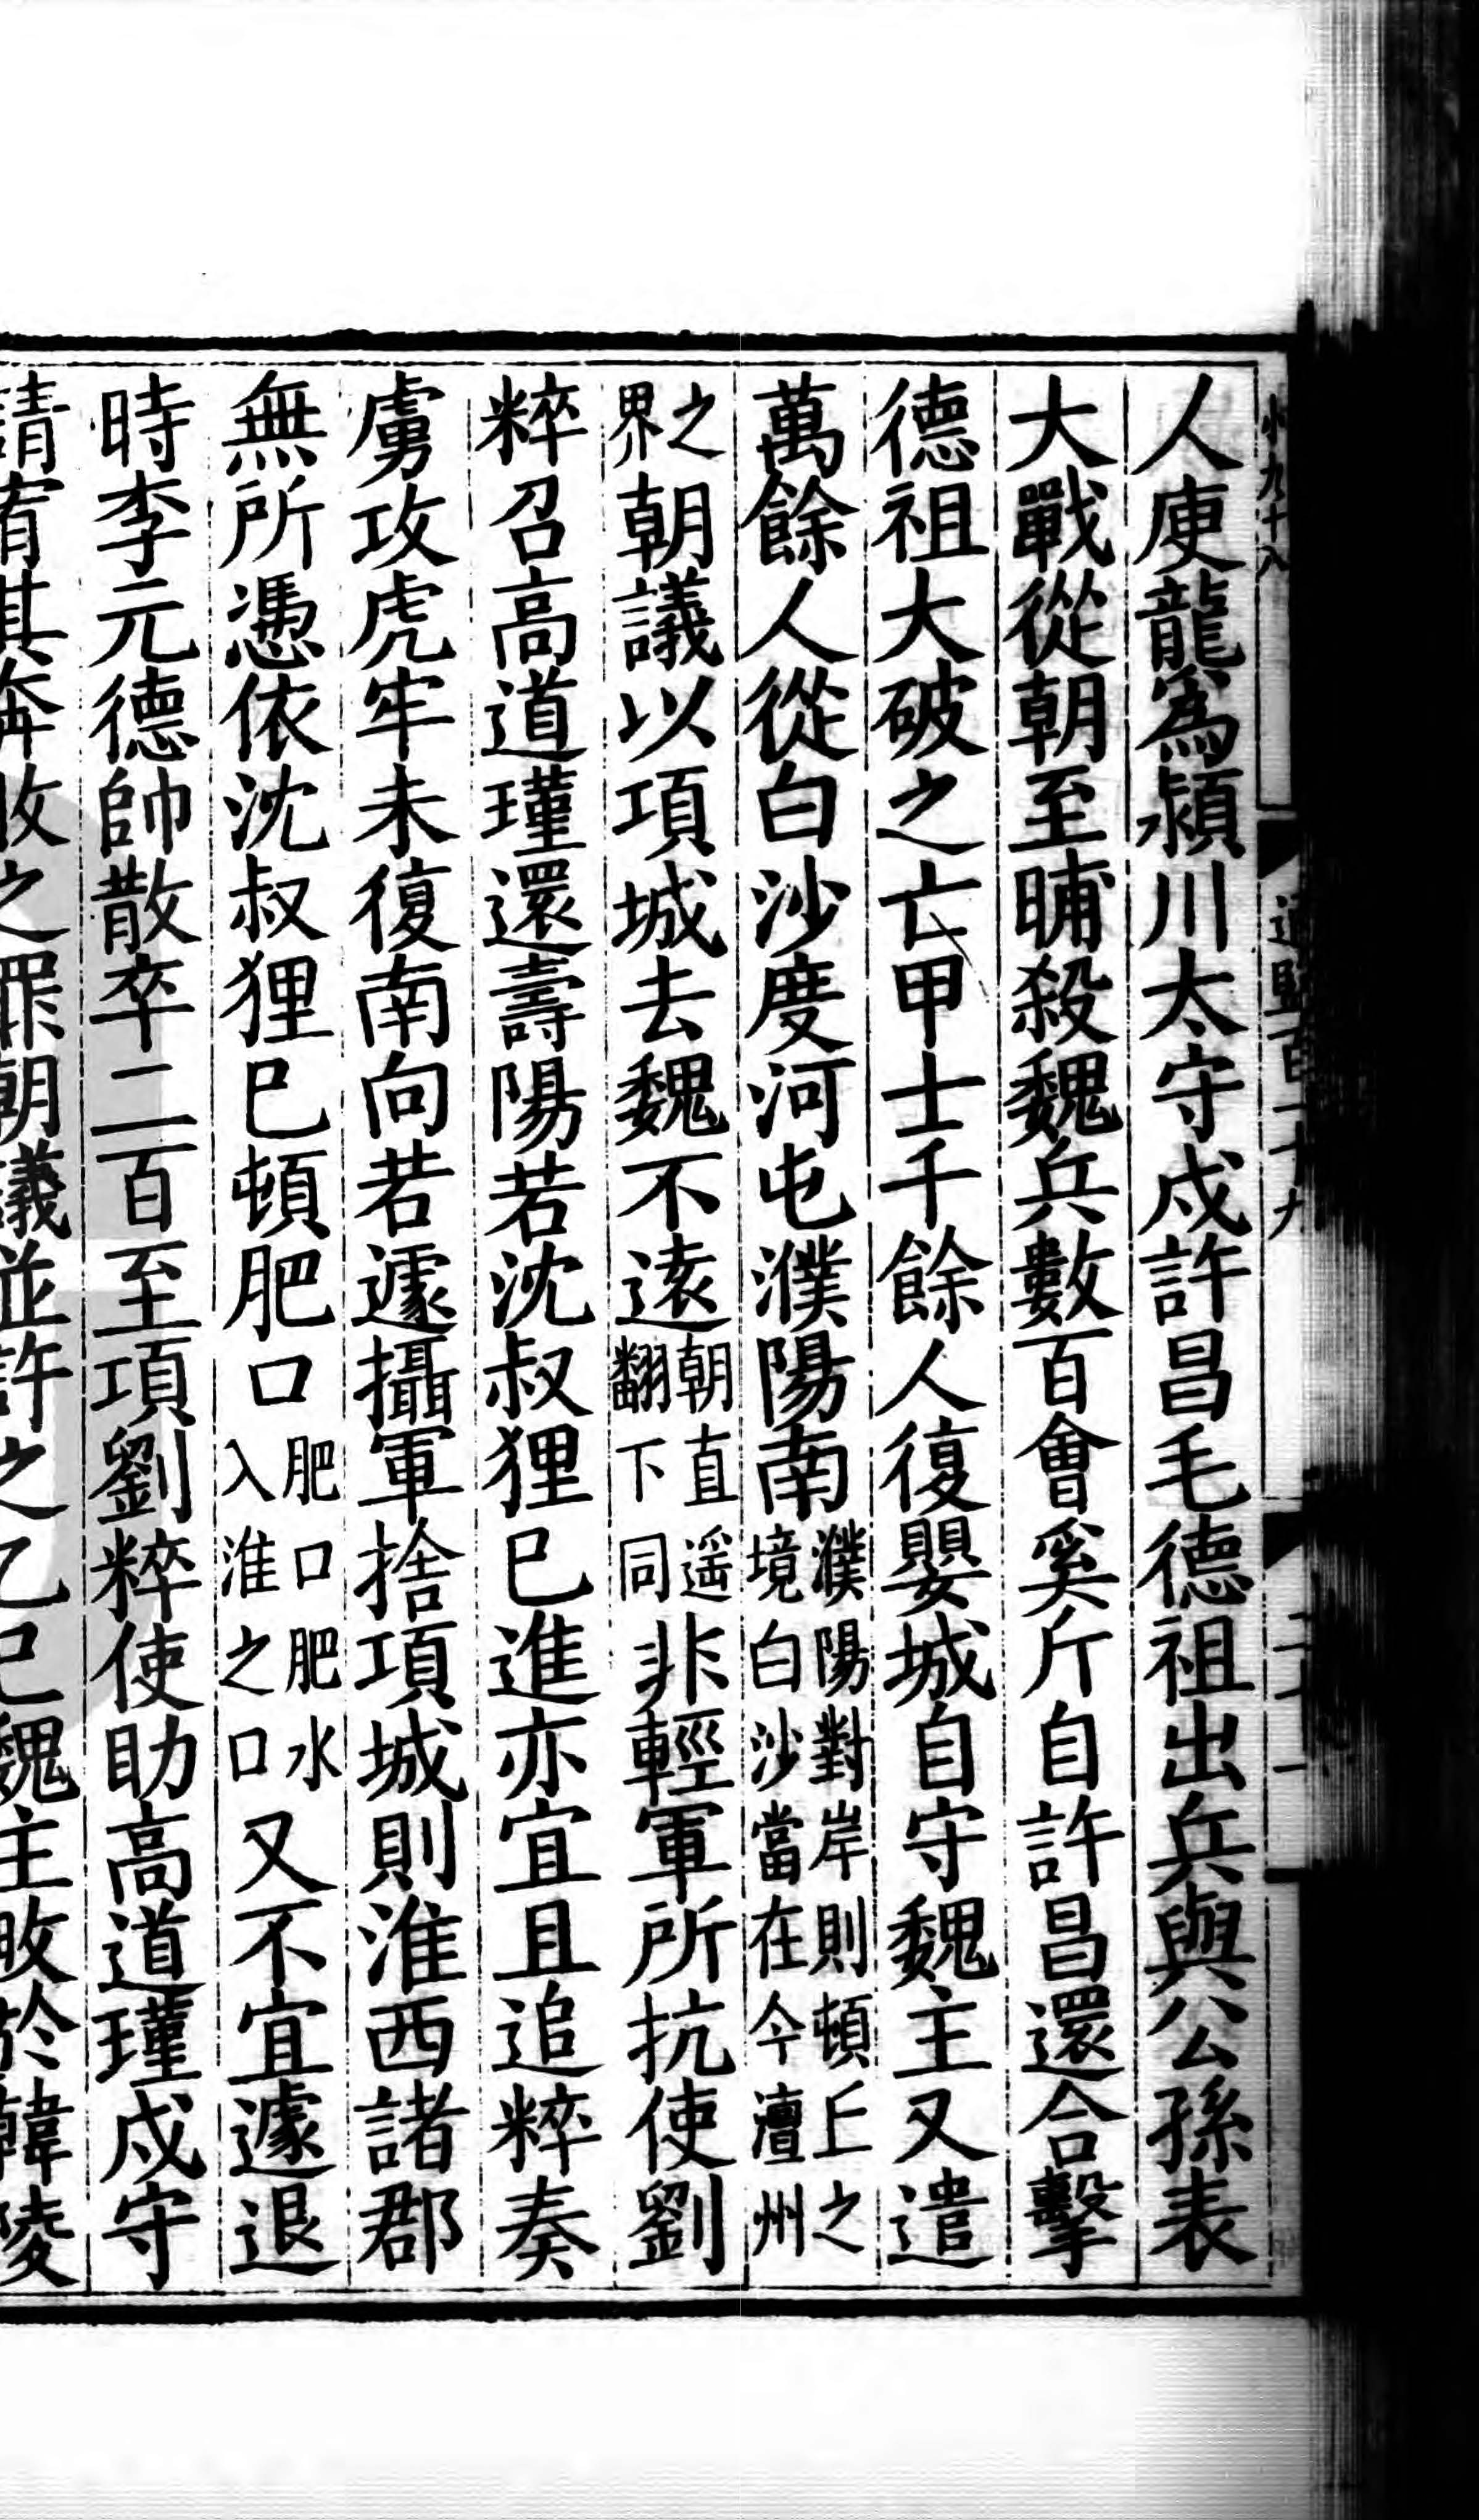 小九十八
通鑑百一十九
二十一
人庾龍爲潁川太守戍許昌毛德祖出兵與公孫表
大戰從朝至晡殺魏兵數百會奚斤自許昌還合擊
德祖大破之亡甲士千餘人復嬰城自守魏主又遣
萬餘人從白沙度河屯濮陽南濮陽對岸則頓丘之境白沙當在今澶州
之界朝議以項城去魏不遠朝直遥翻下同非輕軍所抗使劉
粹召高道瑾還壽陽若沈叔狸已進亦宜且追粹奏
虜攻虎牢未復南向若遽攝軍捨項城則淮西諸郡
無所憑依沈叔狸已頓肥口肥口肥水入淮之口又不宜遽退
時李元德帥散卒二百至項劉粹使助高道瑾戍守
請宥其奔敗之罪朝議並許之乙巳魏主畋於韓陵